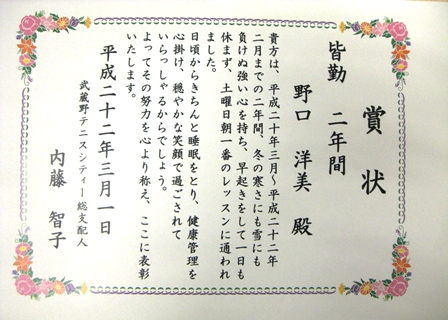 賞状
皆勤 二年間
野口 洋美 殿
貴方は、平成二十年三月~平成二十二年
二月までの二年間、冬の寒さにも雪にも
負けぬ強い心を持ち、早起きをして一日も
休まず、土曜日朝一番のレッスンに通われ
ました。
日頃からきちんと睡眠をとり、健康管理を
心掛け、穏やかな笑顔で過ごされて
いらっしゃるからでしょう。
よってその努力を心より称え、ここに表彰
いたします。
平成二十二年三月一日
武蔵野テニスシティー総支配人
内藤 智子